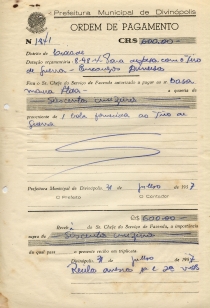 Prefeitura Municipal de Divinópolis
ORDEM DE PAGAMENTO
N 1871 CR$ 600,00
Distrito de
Dotação orçamentária 8-98-4 Para despesa com o Tiro
de Guerra - Encargos Diversos
O Sr. Chefe do Serviço de Fazenda autorizado a pagar ao a Casa
a quantia de
Seiscentos cruzeiros
proveniente de 1 bola fornecida ao Tiro de
Guerra
Prefeitura Municipal de Divinópolis, 31 de julho de 1957
O Prefeito O Contador
CR$ 600,00
Receb do Sr. Chefe do Serviço de Fazenda, a importância
supra de Seiscentos cruzeiros
do qual passo o presente recibo em triplicata.
Divinópolis, 31 de julho de 1957